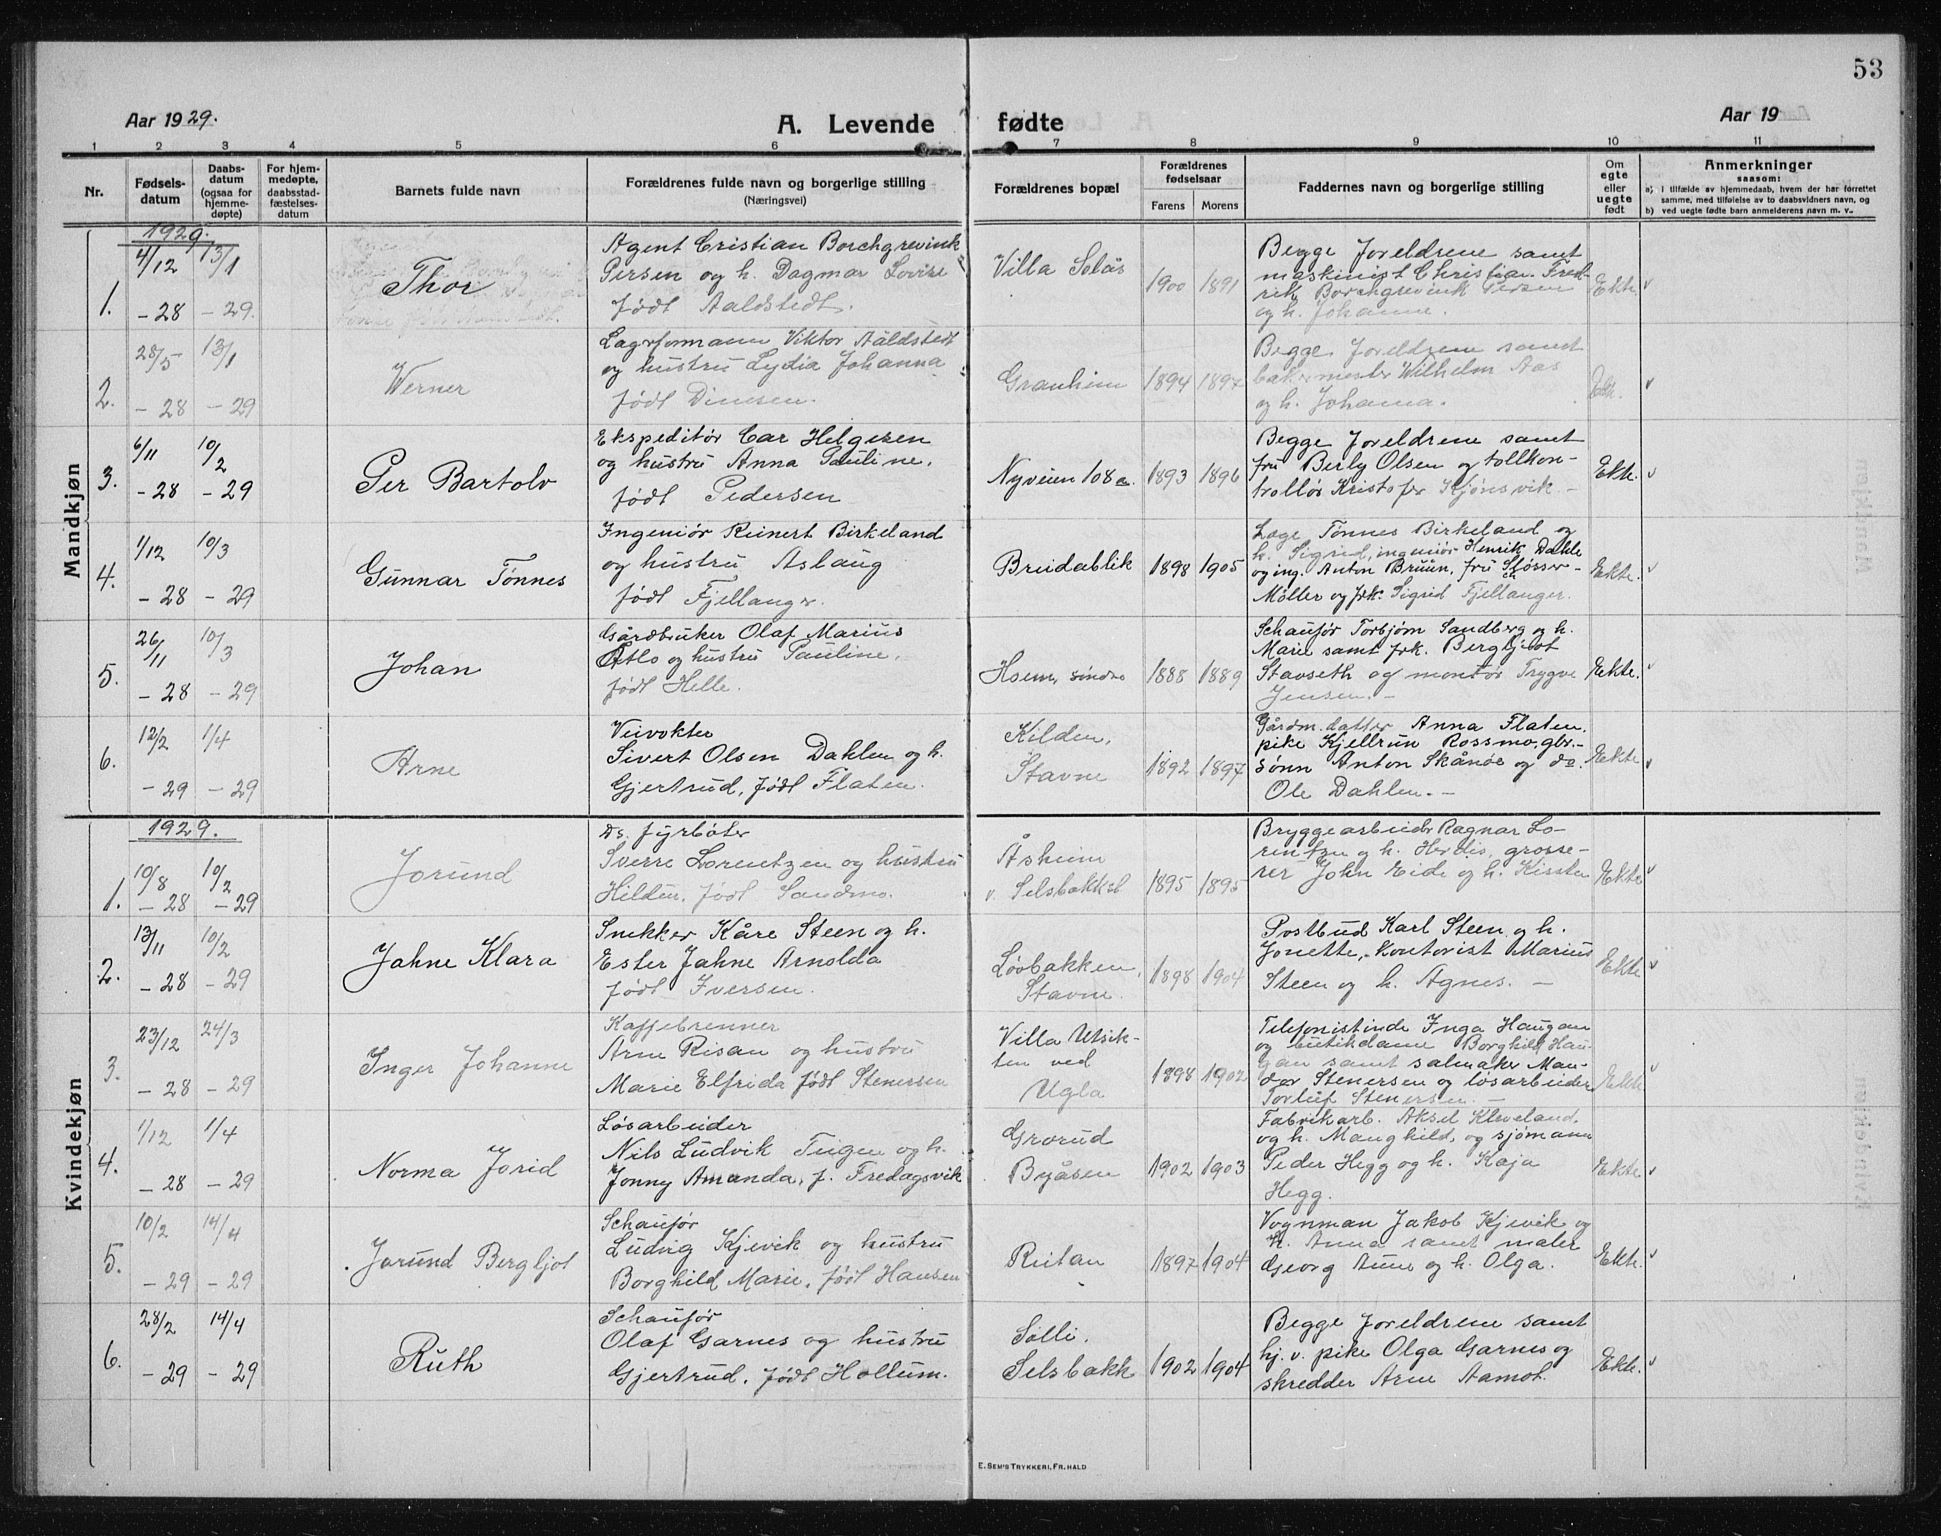 53
Aar 1929.
A. Levende fødte
Aar 19
1 2 3 4 5 6 7 8 9 10 11
Nr.
Fødsels-
datum
Daabs-
datum
(ogsaa for
hjemme-
døpte)
For hjem-
medøpte,
daabsstad-
fæstelses-
datum
Barnets fulde navn
Forældrenes fulde navn og borgerlige stilling
(Næringsvei)
Forældrenes bopæl
Forældrenes
fødselsaar
Farens
Morens
Faddernes navn og borgerlige stilling
Om
egte
eller
uegte
født
Anmerkninger
saasom:
a) i tilfælde av hjemmedaab, hvem der har forrettet
samme, med tilføielse av to daabsvidners navn, og
b) ved uegte fødte barn anmelderens navn m. v.
Mandkjøn
1929.
1.
4/12 13/1
-28 -29.
Thor
Agent Cristian Borchgrevink
Persen og h. Dagmar Lovise
født Aaldstedt.
Villa Solås
1900 1891
Begge foreldrene samt
maskinist Christian Fred-
rik Borchgrevink Persen
og h. Johanne.
Ekte
2.
28/5 13/1
-28 -29
Werner
Lagerformann Viktor Aaldstedt
og hustru Lydia Johanna
født Dinesen.
Granheim
1894 1897
Begge foreldrene samt
bakermester Wilhelm Aas
og h. Johanna.
Ekte.
3.
6/11 10/2
-28 -29
Per Bartolv
Ekspeditør Car Helgesen
og hustru Anna Pauline,
født Pedersen
Nyveien 108a.
1893 1896
Begge foreldrene samt
fru Berly Olsen og tollkon-
trollør Kristofer Kjønsvik.-
Ekte.
4.
1/12 10/3
-28 -29
Gunnar Tønnes
Ingeniør Reinert Birkeland
og hustru Aslaug
født Fjellanger.
Breidablik
1898 1905
Læge Tønnes Birkeland og
h. Sigrid, ingeniør Henrik Dahle
og ing. Anton Bruun, fru
Møller og frk. Sigrid Fjellanger.
Ekte.
5.
26/11 10/3
-28 -29
Johan
Gårdbruker Olaf Marius
Otlo og hustru Pauline,
født Helle.
Hoem, sindre
1888 1889
Schauför Torbjørn Sandberg og h.
Marie samt frk. Bergljot
Stavseth og montør Trygve
Jensen.-
Ekte.
6.
12/2 1/4
-29 -29
Arne
Veivokter
Sivert Olsen Dahlen og h.
Gjertrud, født Flaten.
Kilden,
Stavne
1892 1897
Gårdm. datter Anna Flaten,
pike Kjellrun Rossmo, gbr.-
sønn Anton Skånøe og do.
Ole Dahlen.-
Ekte
Kvindekjøn
1929.
1.
10/8 10/2
-28 -29
Jorund
Ds. fyrbøter
Sverre Lorentzen og hustru
Hildur, født Sandmo.
Åsheim
v. Selsbakk
1895 1895
Bryggearbeider Ragnar Lo-
rentzen og h. Herdis, grosse-
rer John Eide og h. Kirsten
Ekte
2.
13/11 10/2
-28 -29
Jahne Klara
Snekker Kåre Steen og h.
Ester Jahne Arnolda
født Iversen.
Løvbakken,
Stavne.
1898 1904
Postbud Karl Steen og h.
Jonette, kontorist Marius
Steen og h. Agnes.-
Ekte
3.
23/12 24/3
-28 -29
Inger Johanne
Kaffebrenner
Arne Risan og hustru
Marie Elfrida født Stenersen
Villa Utsik-
ten ved
Ugla
1898 1902
Telefonistinde Inga Haugan
og butikdame Borghild Hau-
gan samt salmaker Man-
der Stenersen og løsarbeider
Torleif Stenersen.-
Ekte
4.
1/12 1/4
-28 -29
Norma Jorid
Løsarbeider
Nils Ludvik Tugen og h.
Jonny Amanda, f. Fredagsvik
Grorud
Byåsen
1902 1903
Fabrikarb. Aksel Kleveland,
og h. Manghild, og sjømann
Peder Hegg og h. Kaja
Hegg.
Ekte
5.
10/2 14/4
-29 -29
Jorund Bergljot
Schauför
Ludvig Kjevik og hustru
Borghild Marie, født Hansen
Reitan
1897 1904
Vognman Jakob Kjevik og
h. Anna samt maler
Georg Aune og h. Olga.
Ekte.
6.
28/2 14/4
-29 -29
Ruth
Schauför
Olaf Garnes og hustru
Gjertrud, født Hollum.
Solli.
Selsbakk
1902 1904
Begge foreldrene samt
hj. v. pike Olga Garnes og
skredder Arne Aamot.
Ekte.
E. SEM'S TRYKKERI, FR.HALD